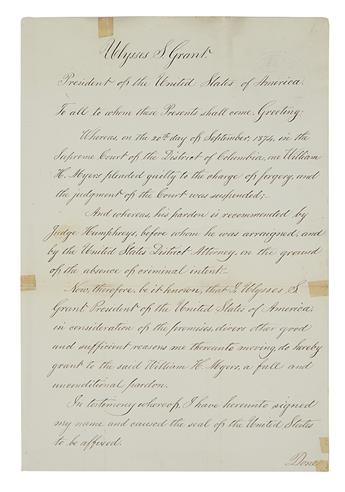 Ulysses S. Grant
President of the United States of America.
To all to whom these Presents shall come, Greeting:
Whereas, on the 20th day of September, 1874, in the
Supreme Court of the District of Columbia, one William
H. Myers pleaded guilty to the charge of forgery, and
the judgment of the Court was suspended;
And whereas, his pardon is recommended by
Judge Humphreys, before whom he was arraigned, and
by the United States District Attorney, on the ground
of the absence of criminal intent.
Now, therefore, be it known, that I, Ulysses S.
Grant, President of the United States of America,
in consideration of the premises, divers other good
and sufficient reasons me thereunto moving, do hereby
grant to the said William H. Myers, a full and
unconditional pardon.
In testimony whereof, I have hereunto signed
my name and caused the seal of the United States
to be affixed.
Done